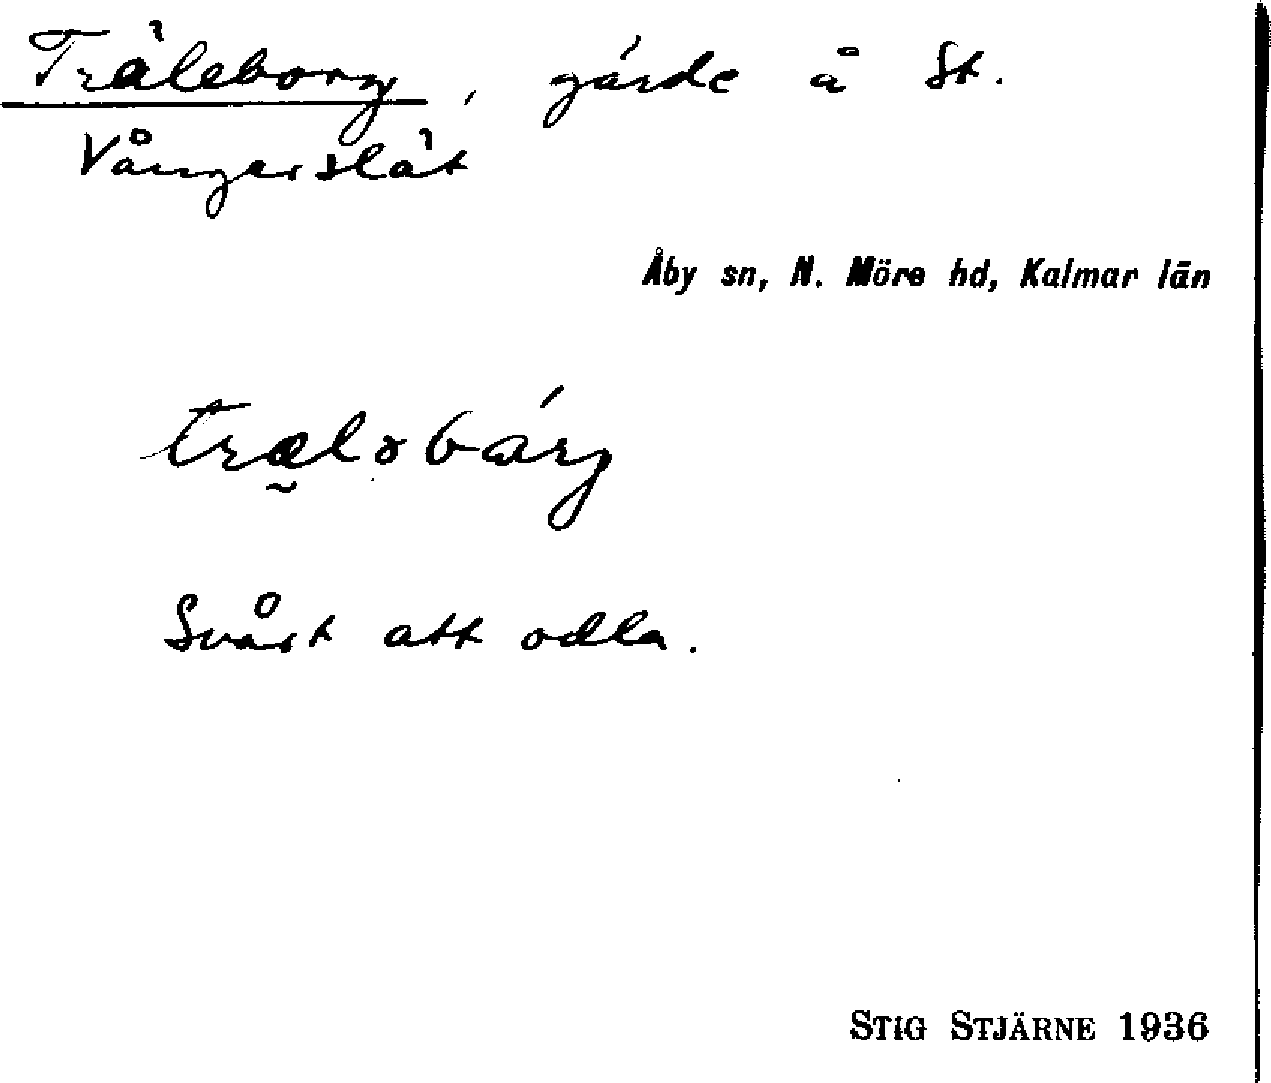 Träleborg, gärde å St.
Vångerslät
Åby sn, N. Möre hd, Kalmar län
Svårt att odla.
STIG STJÄRNE 1936